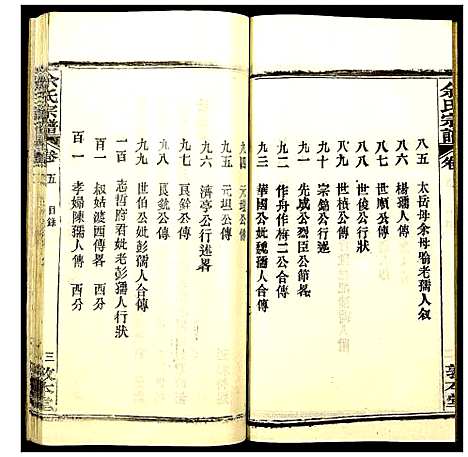 余氏宗譜 卷
八五 太岳母余母喻老孺人叙
八六 楊孺人傳
八七 世順公傳
八八 世俊公行狀
八九 世楨公傳
九十 宗錦公行述
九一 先成公烈臣公節畧
九二 作舟作楫二公合傳
九三 華國公妣魏孺人合傳
敦本堂
九四 元琨公傳
九五 元坦公傳
九六 濟亭公行述畧
九七 良銓公傳
九八 良銓公傳
九九 世伯公妣彭孺人合傳
一百 志哲府君妣老彭孺人行狀
百一 叔姑婆西傳畧 西分
百一 孝婦陳孺人傳 西分
余氏宗譜 卷五 目錄
三 敦本堂